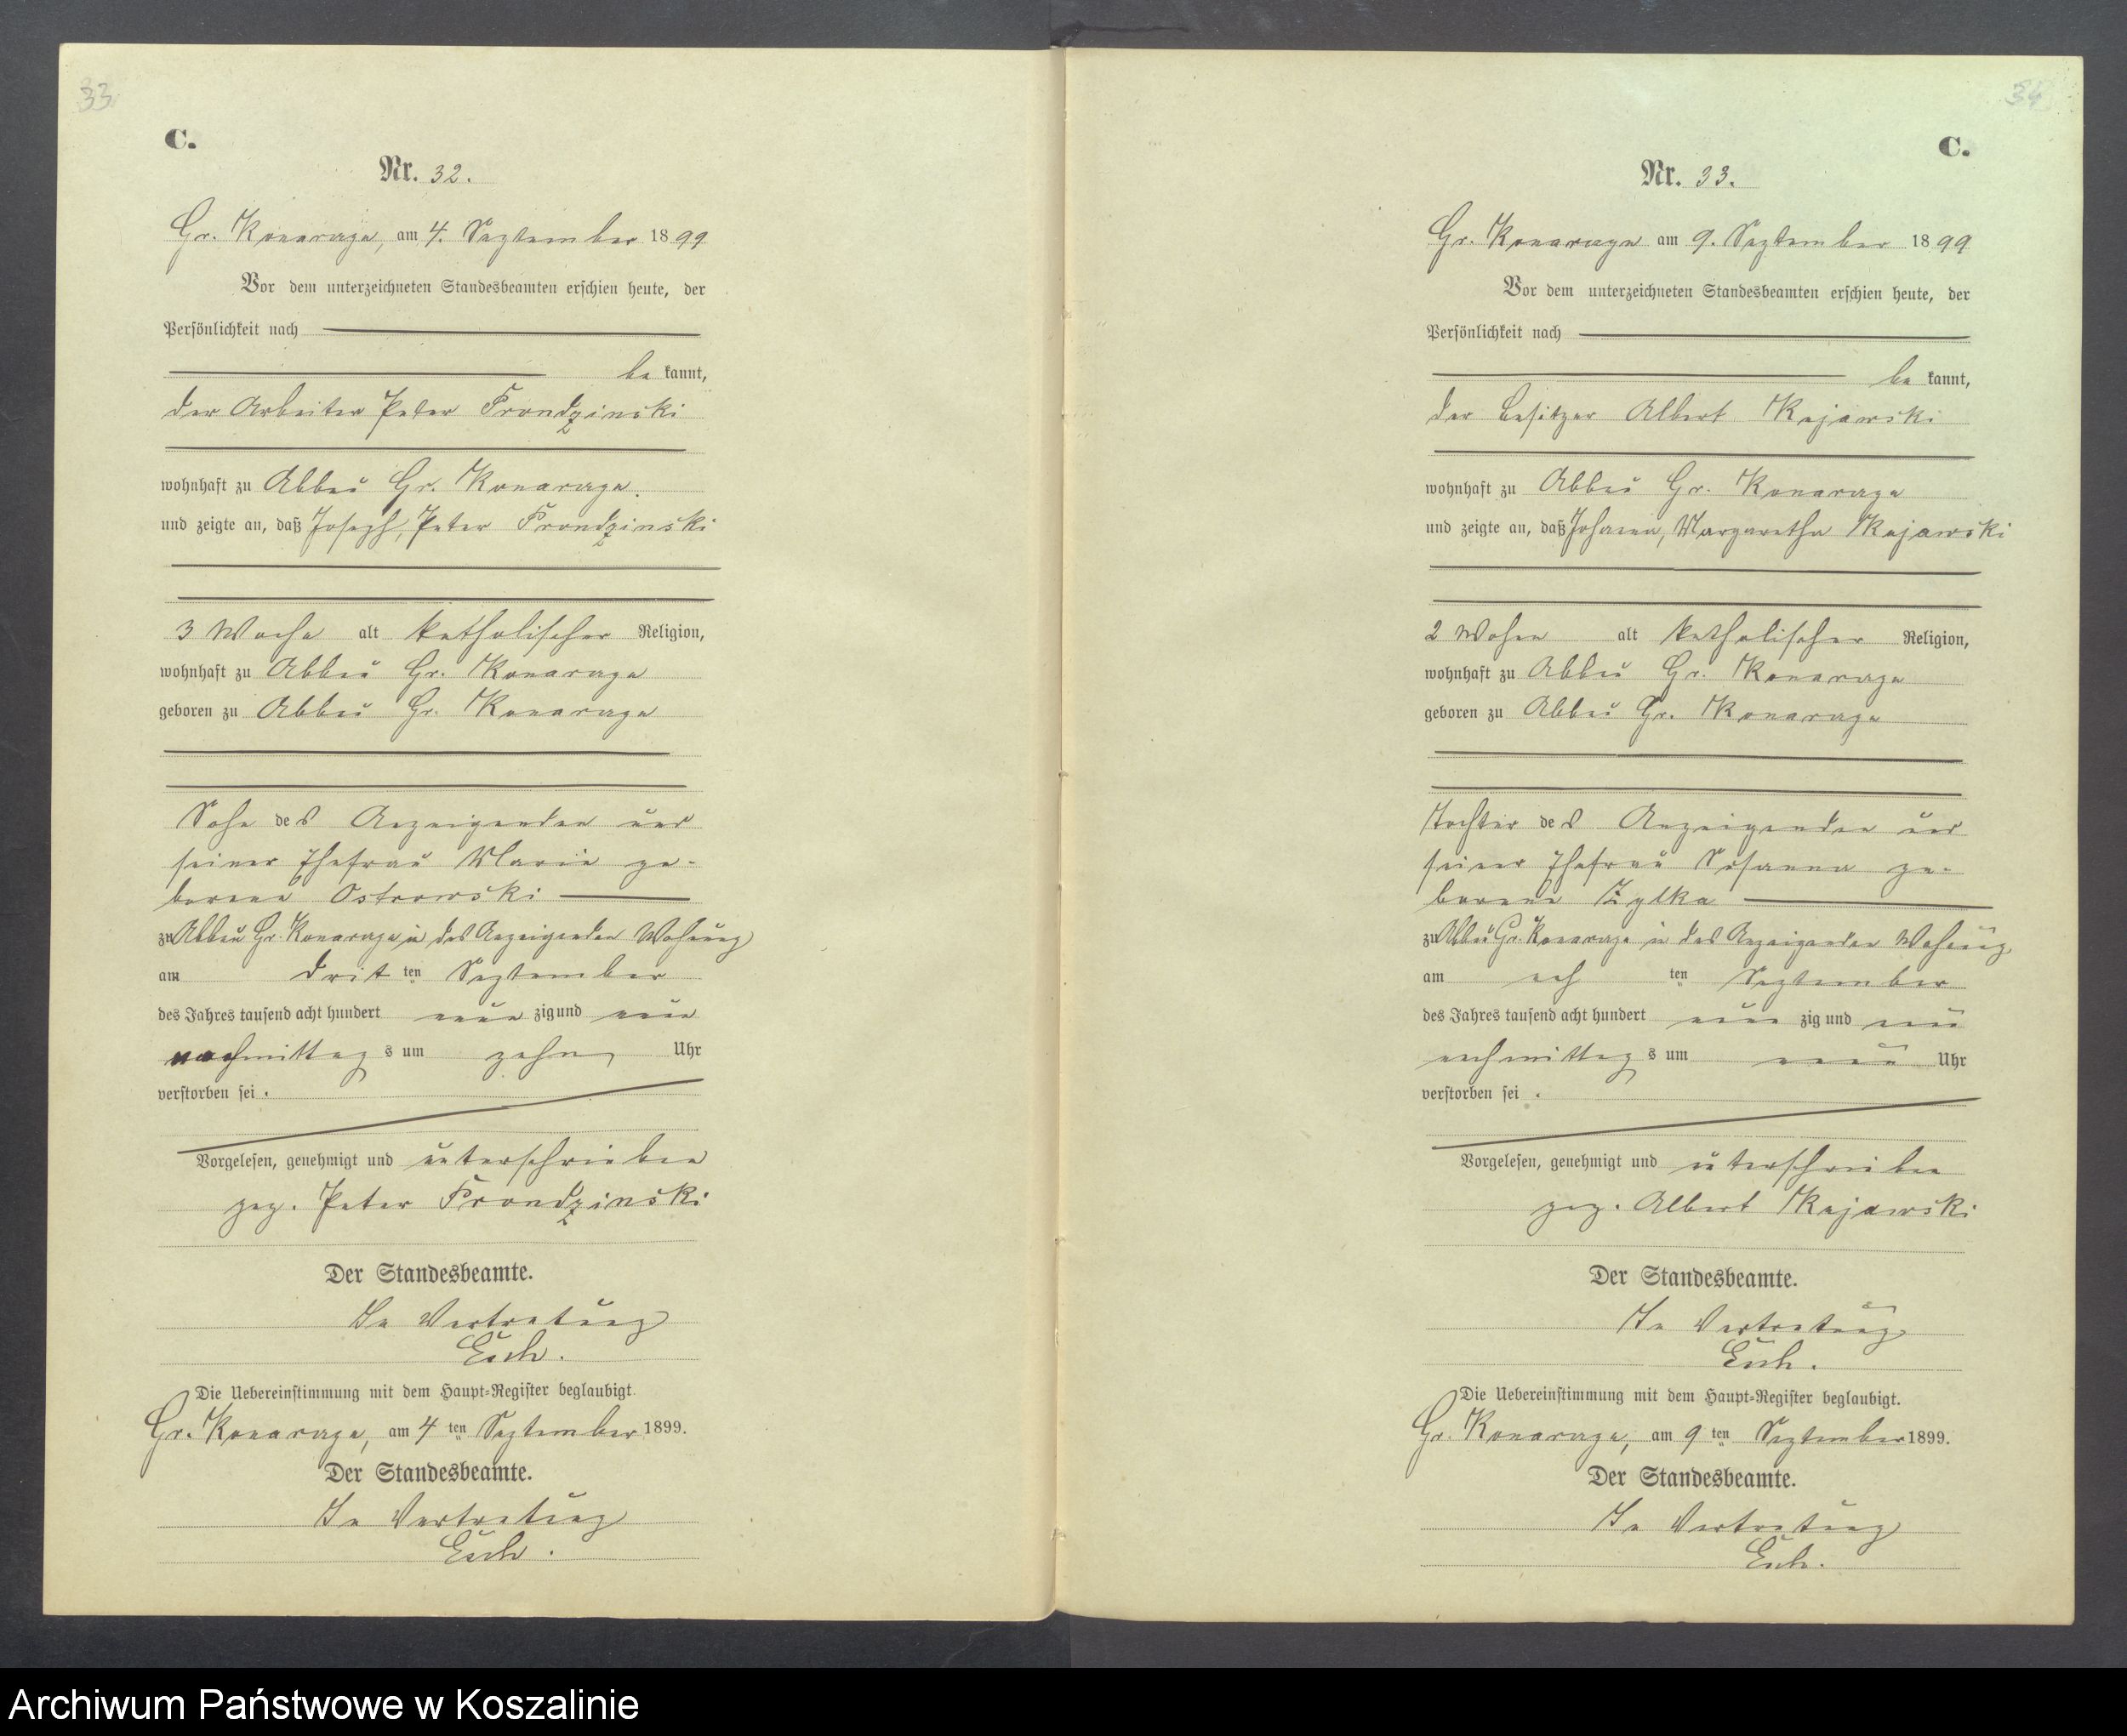 33
C.
Nr. 32.
Gr. Konarzyn, am 4. September 1899
Vor dem unterzeichneten Standesbeamten erschien heute, der
Persönlichkeit nach
be kannt,
der Arbeiter Peter Frondzinski
wohnhaft zu Abbau Gr. Konarzyn.
und zeigte an, daß Joseph, Peter Frondzinski
3 Woche alt katholischer Religion,
wohnhaft zu Abbau Gr. Konarzyn
geboren zu Abbau Gr. Konarzyn
Sohn des Anzeigenden und
seiner Ehefrau Maria ge-
borene Ostrowski
zu Abbau Gr. Konarzyn in des Anzeigenden Wohnung
am drit ten September
des Jahres tausend acht hundert neun zig und neun
nachmittag s um zehn Uhr
verstorben sei.
Vorgelesen, genehmigt und unterschrieben
gez. Peter Frondzinski
Der Standesbeamte.
In Vertretung
Die Uebereinstimmung mit dem Haupt=Register beglaubigt.
Gr. Konarzyn, am 4 ten September 1899.
Der Standesbeamte.
In Vertretung
34
C.
Nr. 33.
Gr. Konarzyn am 9. September 1899
Vor dem unterzeichneten Standesbeamten erschien heute, der
Persönlichkeit nach
be kannt,
der Besitzer Albert Kujawski
wohnhaft zu Abbau Gr. Konarzyn
und zeigte an, daß Johanna, Margaretha Kujawski
2 Wohen alt katholischer Religion,
wohnhaft zu Abbau Gr. Konarzyn
geboren zu Abbau Gr. Konarzyn
Tochter des Anzeigenden und
seiner Ehefrau Susanna ge-
borene Zylka
zu Abbau Gr. Konarzyn in des Anzeigenden Wohnung
am ach ten September
des Jahres tausend acht hundert neun zig und neun
nachmittag s um neun Uhr
verstorben sei.
Vorgelesen, genehmigt und unterschrieben
gez. Albert Kujawski
Der Standesbeamte.
In Vertretung
Die Uebereinstimmung mit dem Haupt=Register beglaubigt.
Gr. Konarzyn, am 9 ten September 1899.
Der Standesbeamte.
In Vertretung
Archiwum Państwowe w Koszalinie